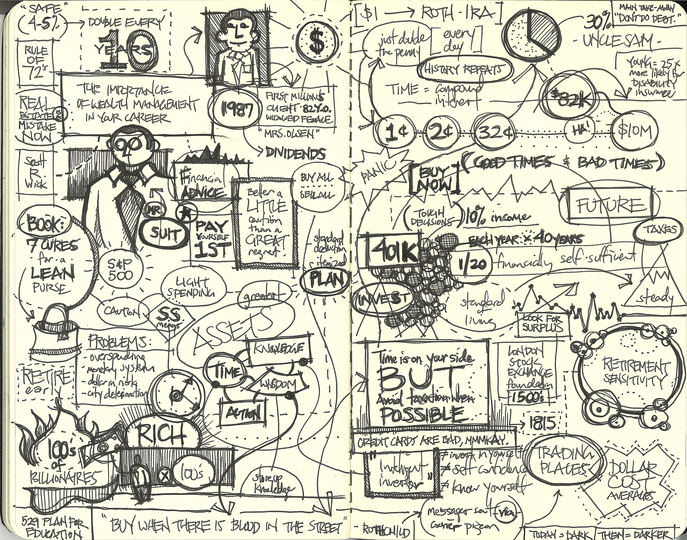 "SAFE"
(4-5%)
DOUBLE EVERY
10
YEARS
RULE
OF
72's
THE IMPORTANCE
OF WEALTH MANAGEMENT
IN YOUR CAREER
$
1987
FIRST MILLION $
CLIENT: 82 Y.O.
WIDOWED FEMALE
"MRS. OLSEN"
DIVIDENDS
REAL
ESTATE
MISTAKE
NOW
Scott
R.
Wick
Financial
ADVICE
MR
SUIT
PAY
YOURSELF
1ST
Better a
LITTLE
caution
than a
GREAT
regret.
BUY ALL
SELL ALL
standard
deduction
itemized
PLAN
BOOK:
7 CURES
for a
LEAN
PURSE
S&P
500
LIGHT
SPENDING
greatest
CAUTION
SS
money
ASSETS
KNOWLEDGE
TIME
WISDOM
ACTION
PROBLEMS:
- overspending
- monetary system
- dollar is risky
- city deterioration
RETIRE
early
RICH
100's
of
BILLIONAIRES
100's
store up
knowledge
529 PLAN FOR
EDUCATION
"BUY WHEN THERE IS BLOOD IN THE STREET"
- ROTHCHILD
[$1 → ROTH-IRA]
just double
the penny
every
day
HISTORY REPEATS
TIME = compound
interest
30%
"MAIN TAKE-AWAY
"DON'T DO DEBT."
- UNCLE SAM -
YOUNG = 25x
more likely for
disability
insurance
$82K
1¢
2¢
32¢
HA!
$10M
PANIC
BUY
NOW
(GOOD TIMES & BAD TIMES)
TOUGH
DECISIONS
10% income
FUTURE
TAXES
401K
EACH YEAR x 40 YEARS
1/20
financially self-sufficient
INVEST
standard of
living
steady
LOOK FOR
SURPLUS
Time is on your side
BUT
Avoid taxation when
POSSIBLE
LONDON
STOCK
EXCHANGE
foundation
1500's
1815
RETIREMENT
SENSITIVITY
CREDIT CARDS ARE BAD, MMMKAY.
Intelligent
investor
≠ invest in yourself
≠ self confidence
≠ know yourself
TRADING
PLACES
DOLLAR
COST
AVERAGES
messages sent via
carrier pigeon
TODAY = DARK
THEN = DARKER